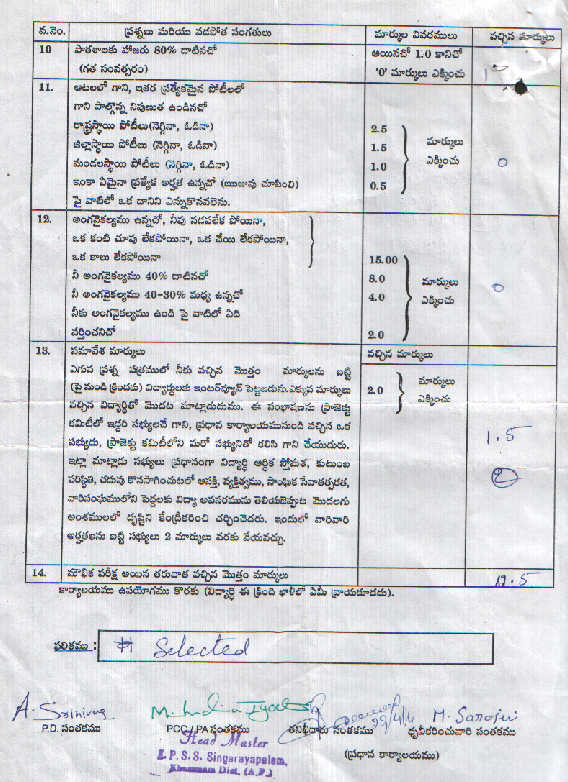 వ.నెం. ప్రశ్నలు మరియు వడపోత సంగతులు మార్కుల వివరములు వచ్చిన మార్కులు
10 పాఠశాలకు హాజరు 80% దాటినచో అయినచో 1.0 కానిచో
(గత సంవత్సరం) '0' మార్కులు ఎక్కించు
11. ఆటలలో గాని, ఇతర ప్రత్యేకమైన పోటీలలో
గాని పాల్గొన్న నిపుణుత ఉండినచో
రాష్ట్రస్థాయి పోటీలు(నెగ్గినా, ఓడినా) 2.5
జిల్లాస్థాయి పోటీలు (నెగ్గినా, ఓడినా) 1.5 మార్కులు
మండలస్థాయి పోటీలు (నెగ్గినా, ఓడినా) 1.0 ఎక్కించు 0
ఇంకా ఏమైనా ప్రత్యేక అర్హత ఉన్నచో (ఋజువు చూపించి) 0.5
పై వాటిలో ఒక దానిని ఎన్నుకొనవలెను.
12. అంగవైకల్యము ఉన్నచో, నీవు నడపలేక పోయినా,
ఒక కంటి చూపు లేకపోయినా, ఒక చేయి లేకపోయినా,
ఒక కాలు లేకపోయినా 15.00
నీ అంగవైకల్యము 40% దాటినచో 8.0 మార్కులు
నీ అంగవైకల్యము 40-30% మధ్య ఉన్నచో 4.0 ఎక్కించు 0
నీకు అంగవైకల్యము ఉండి పై వాటిలో ఏది
వర్తించనిచో 2.0
13. సమావేశ మార్కులు వచ్చిన మార్కులు
ఎగువ ప్రశ్న పత్రములో నీకు వచ్చిన మొత్తం మార్కులను బట్టి మార్కులు
(పై నుండి క్రిందకు) విద్యార్థులకు ఇంటర్వ్యూలో పెట్టబడును.ఎక్కువ మార్కులు 2.0 ఎక్కించు
వచ్చిన విద్యార్థితో మొదట మాట్లాడుదుము. ఈ సంభాషణను ప్రాజెక్టు
కమిటీలో ఇద్దరి సభ్యులచే గాని, ప్రధాన కార్యాలయమునుండి వచ్చిన ఒక
సభ్యుడు, ప్రాజెక్టు కమిటీలోని మరో సభ్యునితో కలిసి గాని చేయుదురు. 1.5
ఇట్లా మాట్లాడు సభ్యులు ప్రధానంగా విద్యార్థి ఆర్థిక స్తోమత, కుటుంబ
పరిస్థితి, చదువు కొనసాగించుటలో ఆసక్తి, వ్యక్తిత్వము, సాంఘిక సేవాతత్పరత, 2
వారిసంఘములోని పెద్దలకు విద్యా అవసరమును తెలియజెప్పుట మొదలగు
అంశములలో దృష్టిని కేంద్రీకరించి చర్చించెదరు. ఇందులో వారివారి
అర్హతలను బట్టి సభ్యులు 2 మార్కులు వరకు వేయవచ్చు.
14. మౌఖిక పరీక్ష అయిన తరువాత వచ్చిన మొత్తం మార్కులు
కార్యాలయము ఉపయోగము కొరకు (విద్యార్థి ఈ క్రింది ఖాళీలో ఏమీ వ్రాయకూడదు).
ఫలితము : Selected
P.D. సంతకము PCC / PA సంతకము తనిఖీదారు సంతకము ధృవీకరించువారి సంతకము
(ప్రధాన కార్యాలయము)
Head Master
Z.P.S.S. Singarayapalem,
Khammam Dist. (A.P.)